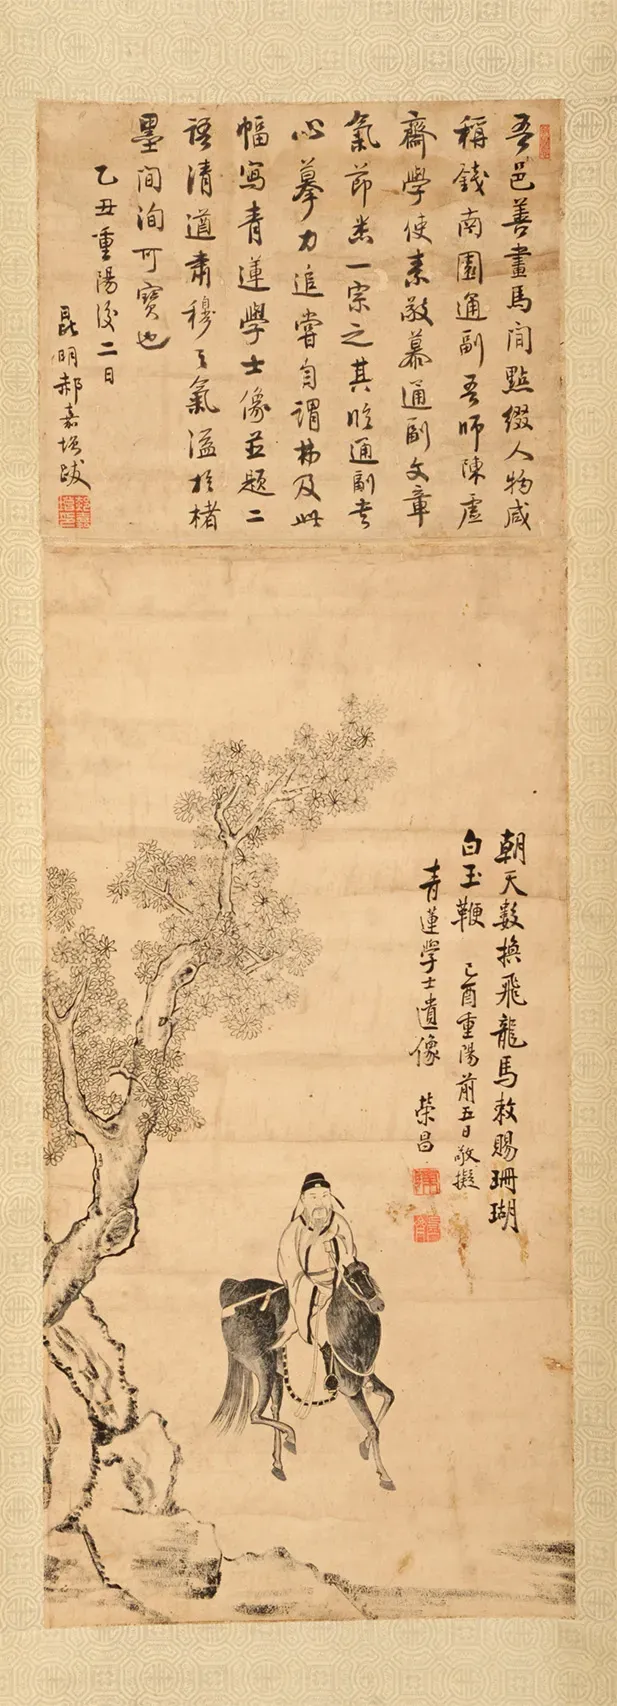 吾邑善畫馬間點綴人物咸
稱錢南園通副吾師陳虛
齋學使素敬慕通副文章
氣節悉一宗之其臨通副畫
心摹力追嘗自謂弗及此
幅寫青蓮學士像並題二
語清遒肅穆之氣溢於楮
墨間洵可寶也
乙丑重陽後二日
昆明郝嘉增跋
朝天數換飛龍馬敕賜珊瑚
白玉鞭 己酉重陽前五日敬擬
青蓮學士遺像 榮昌